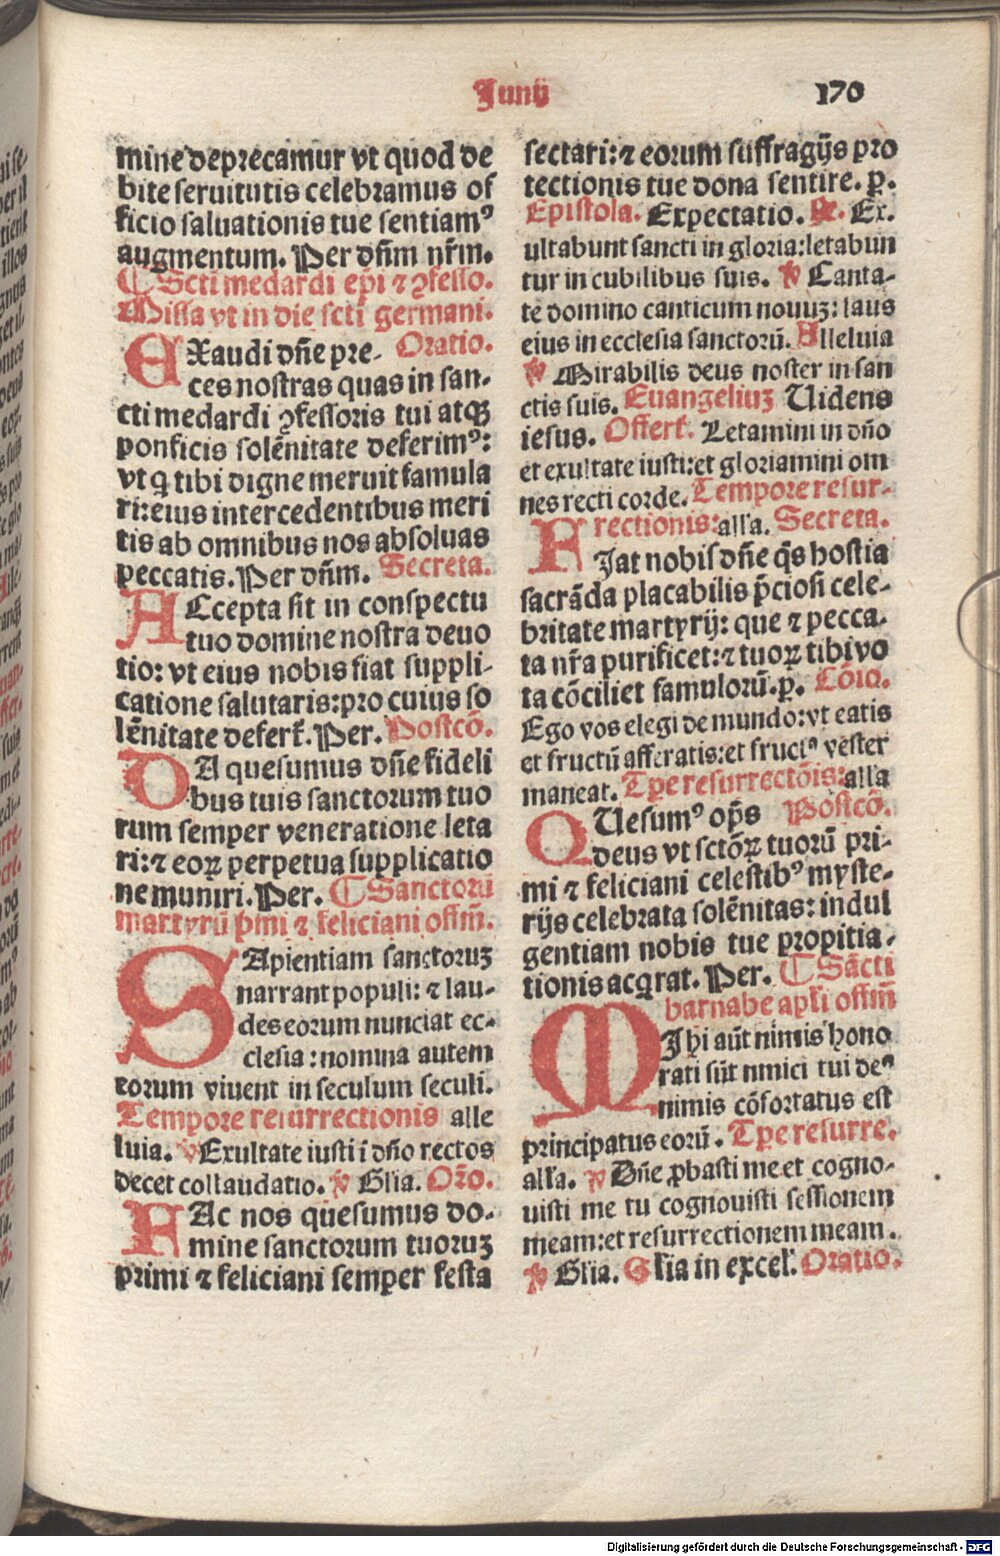 Junij
170
mine deprecamur vt quod de
bite seruitutis celebramus of
ficio saluationis tue sentiamꝰ
augmentum. Per dn̄m nr̄m.
¶ Scti medardi ep̄i ⁊ ꝯfesso.
Missa vt in die scti germani.
EXaudi dn̄e pre- Oratio.
ces nostras quas in san-
cti medardi ꝯfessoris tui atqꝫ
ponficis solēnitate deferimꝰ:
vt q̇ tibi digne meruit famula
ri: eius intercedentibus meri
tis ab omnibus nos absoluas
peccatis. Per dn̄m. Secreta.
ACcepta sit in conspectu
tuo domine nostra deuo
tio: vt eius nobis fiat suppli-
catione salutaris: pro cuius so
lēnitate defert᷑. Per. Postcō.
DA quesumus dn̄e fideli
bus tuis sanctorum tuo
rum semper veneratione leta
ri: ⁊ eoꝝ perpetua supplicatio
ne muniri. Per. ¶ Sanctorū
martyrū p̄mi ⁊ feliciani offm̄.
SApientiam sanctoruꝫ
narrant populi: ⁊ lau-
des eorum nunciat ec-
clesia: nomina autem
eorum viuent in seculum seculi.
Tempore resurrectionis alle
luia. ℣ Exultate iusti ī dn̄o rectos
decet collaudatio. ℣ Glia. Orō.
FAc nos quesumus do-
mine sanctorum tuoruꝫ
primi ⁊ feliciani semper festa
sectari: ⁊ eorum suffragijs pro
tectionis tue dona sentire. p.
Epistola. Expectatio. ℟. Ex.
ultabunt sancti in gloria: letabun
tur in cubilibus suis. ℣ Canta-
te domino canticum nouuꝫ: laus
eius in ecclesia sanctorū. Alleluia
℣ Mirabilis deus noster in san
ctis suis. Euangeliuꝫ Uidens
iesus. Offert᷑. Letamini in dn̄o
et exultate iusti: et gloriamini om
nes recti corde. Tempore resur-
rectionis: all'a. Secreta.
FIat nobis dn̄e q̄s hostia
sacrāda placabilis p̄ciosi cele-
britate martyrij: que ⁊ pecca-
ta nr̄a purificet: ⁊ tuoꝝ tibi vo
ta cōciliet famulorū. p. Cōio.
Ego vos elegi de mundo: vt eatis
et fructū afferatis: et fructꝰ vester
maneat. Tp̄e resurrectōis: all'a
QUesumꝰ op̄s Postcō.
deus vt sctōꝝ tuorū pri-
mi ⁊ feliciani celestibꝰ myste-
rijs celebrata solēnitas: indul
gentiam nobis tue propitia-
tionis acq̇rat. Per. ¶ Sācti
barnabe apl'i offm̄
MIhi aūt nimis hono
rati sūt amici tui deꝰ
nimis cōfortatus est
principatus eorū. Tp̄e resurre.
all'a. ℣ Dn̄e ꝓbasti me et cogno-
uisti me tu cognouisti sessionem
meam: et resurrectionem meam.
℣ Glia. Glia in excel'. Oratio.
Digitalisierung gefördert durch die Deutsche Forschungsgemeinschaft - DFG